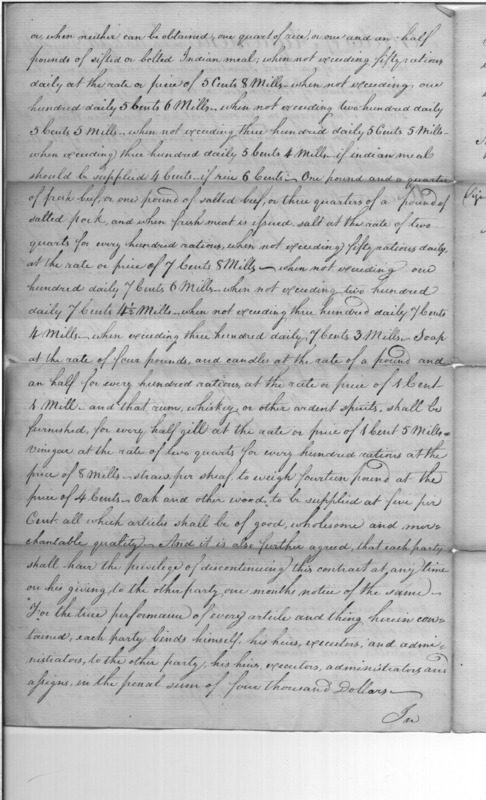 or, when neither can be obtained, one quart of rice, or one and an half
pounds of sifted or bolted Indian meal; when not exceeding fifty rations
daily at the rate or price of 5 Cents 8 Mills – when not exceeding, one
hundred daily 5 Cents 6 Mills – when not exceeding two hundred daily
5 Cents 5 Mills – when not exceeding three hundred daily 5 Cents 5 Mills –
when exceeding three hundred daily 5 Cents 4 Mills – if indian meal
should be supplied 4 Cents – if rice 6 Cents – One pound and a quarter
of fresh beef, or one pound of salted beef, or three quarters of a pound of
salted pork, and when fresh meat is issued, salt at the rate of two
quarts for every hundred rations, when not exceeding fifty rations daily,
at the rate or price of 7 Cents 8 Mills – when not exceeding one
hundred daily 7 Cents 6 Mills – when not exceeding two hundred
daily 7 Cents 4½ Mills – when not exceeding three hundred daily 7 Cents
4 Mills – when exceeding three hundred daily, 7 Cents 3 Mills – Soap
at the rate of four pounds, and candles at the rate of a pound and
an half for every hundred rations, at the rate or price of 1 Cent
1 Mill – and that rum, whiskey, or other ardent spirits, shall be
furnished, for every half gill at the rate or price of 1 Cent 5 Mills –
vinegar at the rate of two quarts for every hundred rations at the
price of 8 Mills – straw per sheaf, to weigh fourteen pound at the
price of 4 Cents – Oak and other wood, to be supplied at five per
Cent: all which articles shall be of good, wholesome and mer=
chantable quality – And it is also further agreed, that each party
shall have the privilege of discontinuing this contract at any time
on he giving to the other party, one months notice of the same –
For the true performance of every article and thing herein con=
tained, each party binds himself, his heirs, executors, and admi=
nistrators, to the other party, his heirs, executors, administrators and
assigns, in the penal sum of four thousand Dollars –
In